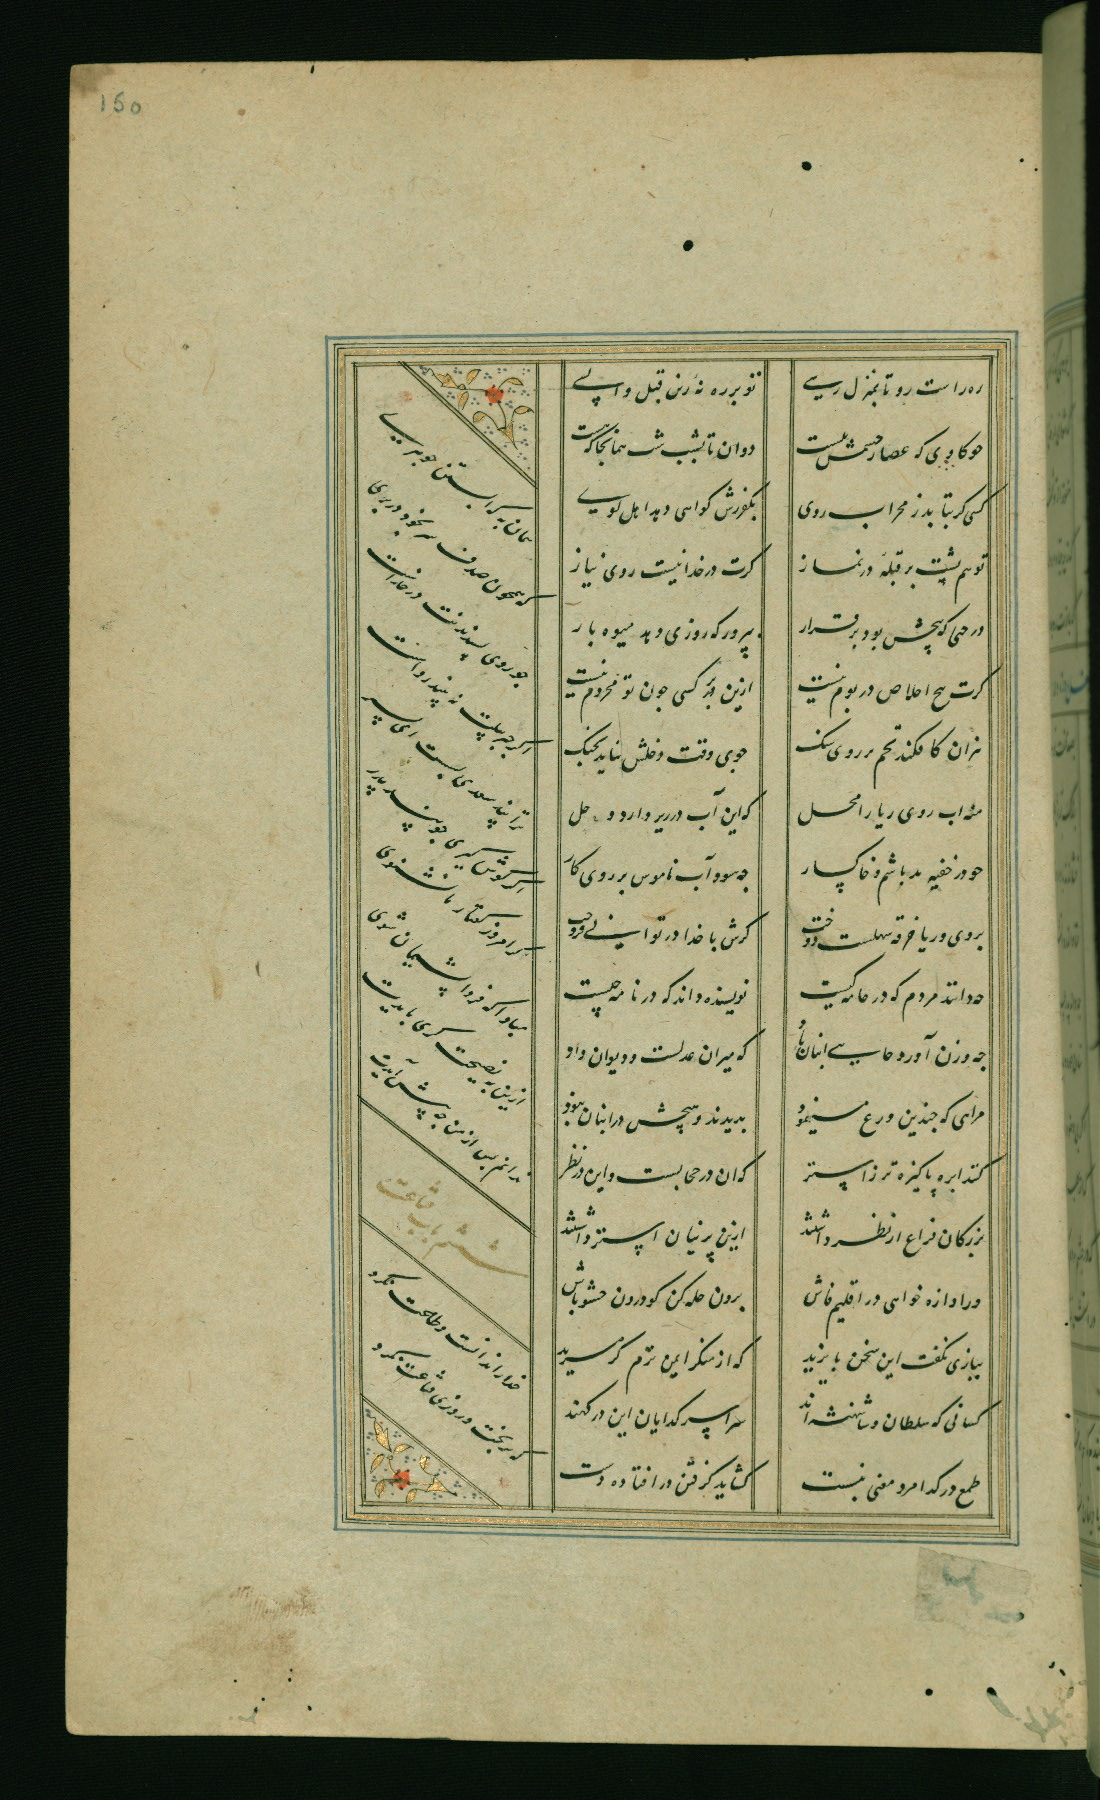 150
ره راست رو تا بمنزل رسی
تو بر ره نهٔ زین قبل واپسی
چو گاوی که عصار چشمش ببست
دوان تا بشب شب همانجا که هست
کسی گر بتابد ز محراب روی
بکفرش گواهی دهد اهل کوی
تو هم پشت بر قبلهٔ در نماز
گرت در خدا نیست روی نیاز
درختی که بیخش بود برقرار
بپرور که روزی دهد میوه بار
گرت بیخ اخلاص در بوم نیست
ازین در کسی چون تو محروم نیست
هر آن کافکند تخم بر روی سنگ
جوی وقت دخلش نیاید بچنگ
منه آب روی ریا را محل
که این آب در زیر دارد وحل
چو در خفیه بد باشم و خاکسار
چه سود آب ناموس بر روی کار
بروی و ریا خرقه سهلست دوخت
گرش با خدا در توانی فروخت
چه دانند مردم که در جامه کیست
نویسنده داند که در نامه چیست
چه وزن آورد جایی انبان باد
که میزان عدلست و دیوان داد
مرائی که چندین ورع مینمود
بدیدند و هیچش در انبان نبود
کنند ابره پاکیزه تر ز استر
که آن در حجابست و این در نظر
بزرگان فراغ از نظر داشتند
ازین پرنیان استر داشتند
ور آوازه خواهی در اقلیم فاش
برون حله کن گو درون حشو باش
ببازی نگفت این سخن بایزید
که از منکر ایمن ترم کز مرید
کسانی که سلطان و شاهنشه اند
سراسر گدایان این درگهند
طمع در گدا مرد معنی نبست
نشاید گرفتن در افتاده دست
همان به گر آبستن جوهری
که همچون صدف سر بخود در بری
چو روی پرستیدنت در خداست
اگر جبرئیلت نه بیند رواست
ترا پند سعدی بست ای پسر
اگر گوش گیری چو پند پدر
گر امروز گفتار ما نشنوی
مبادا که فردا پشیمان شوی
ازین به نصیحت گری بایدت
ندانم پس از من چه پیش آیدت
باب ششم
قناعت
خدا را ندانست و طاعت نکرد
که بر بخت و روزی قناعت نکرد